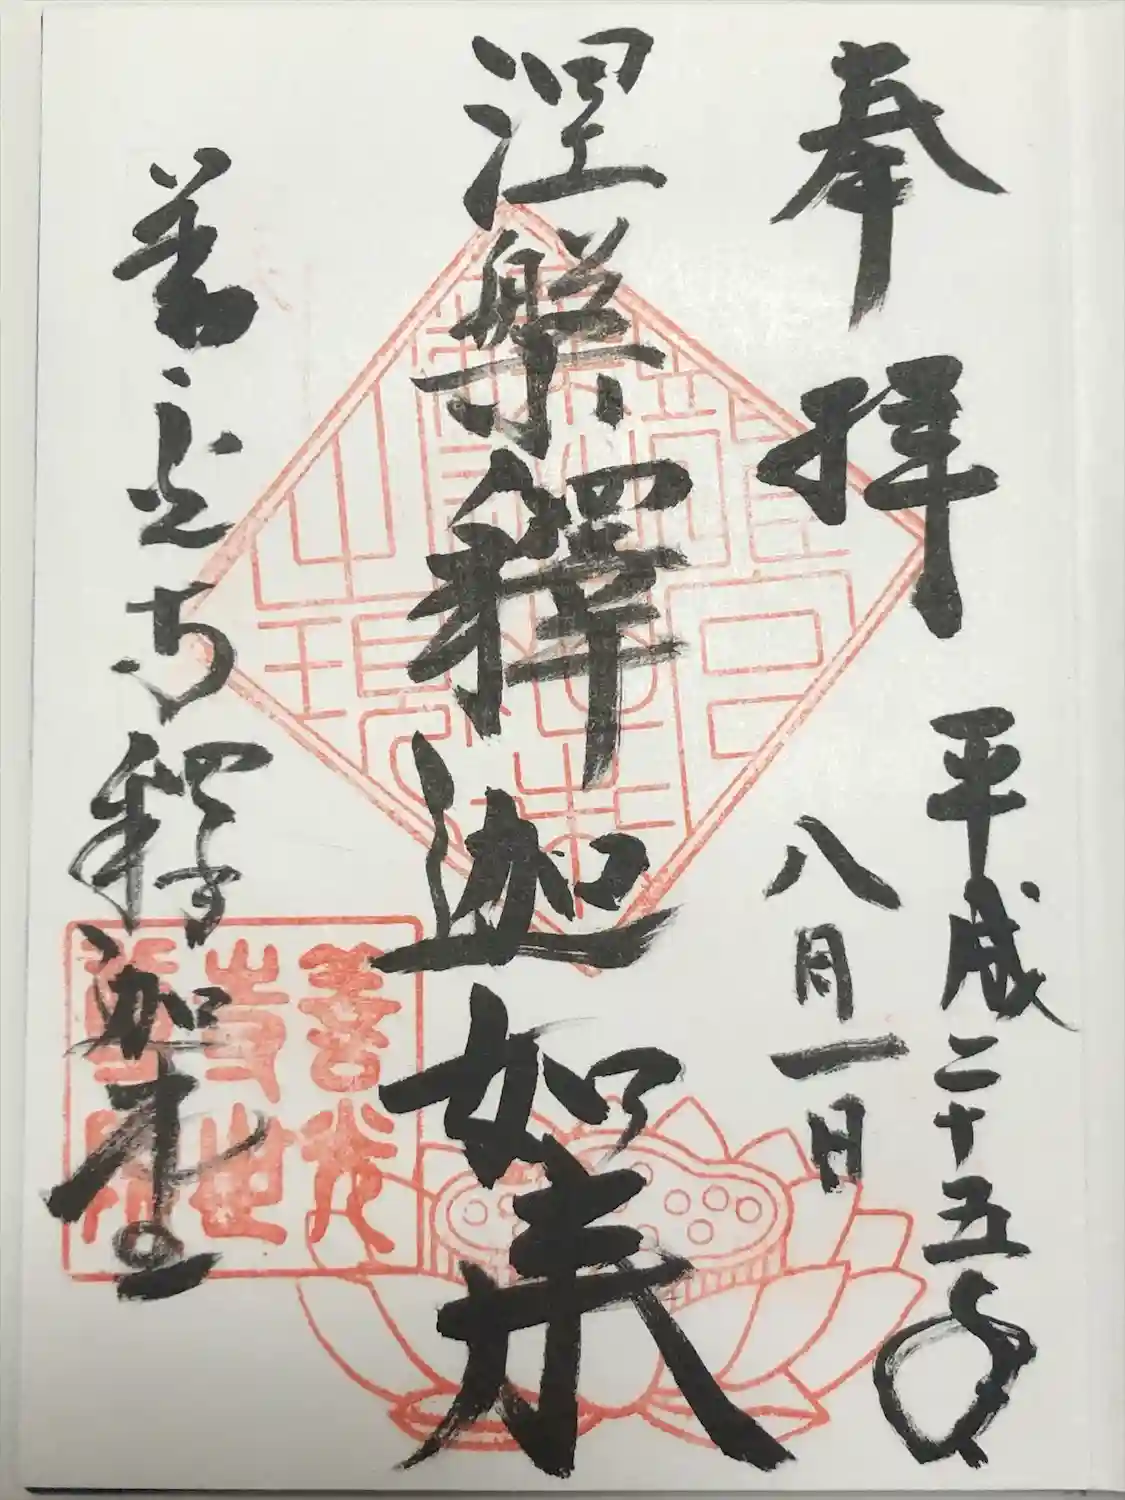 奉拝
平成二十五年
八月一日
涅槃釋迦如来
善光寺釋迦堂
善光
寺世
尊院